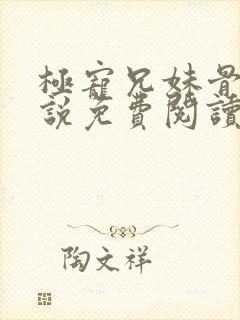 極寵兄妹骨
說免費閱讀
陶文祥